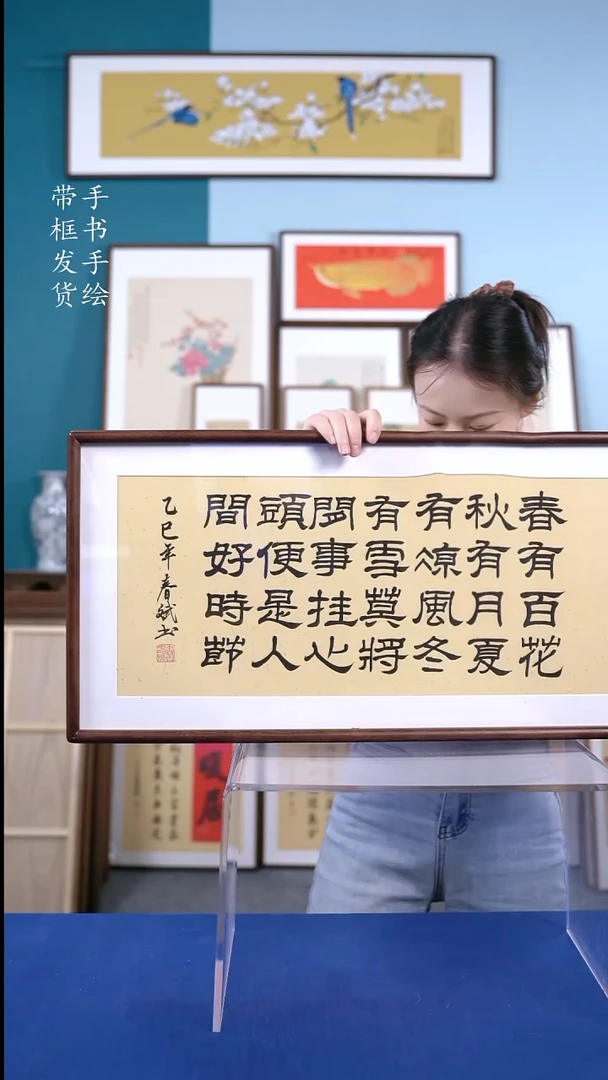 手书手绘
带框发货
春有百花
秋有月夏
有凉風冬
有雪莫將
閑事挂心
頭便是人
間好時節
乙巳年春斌书